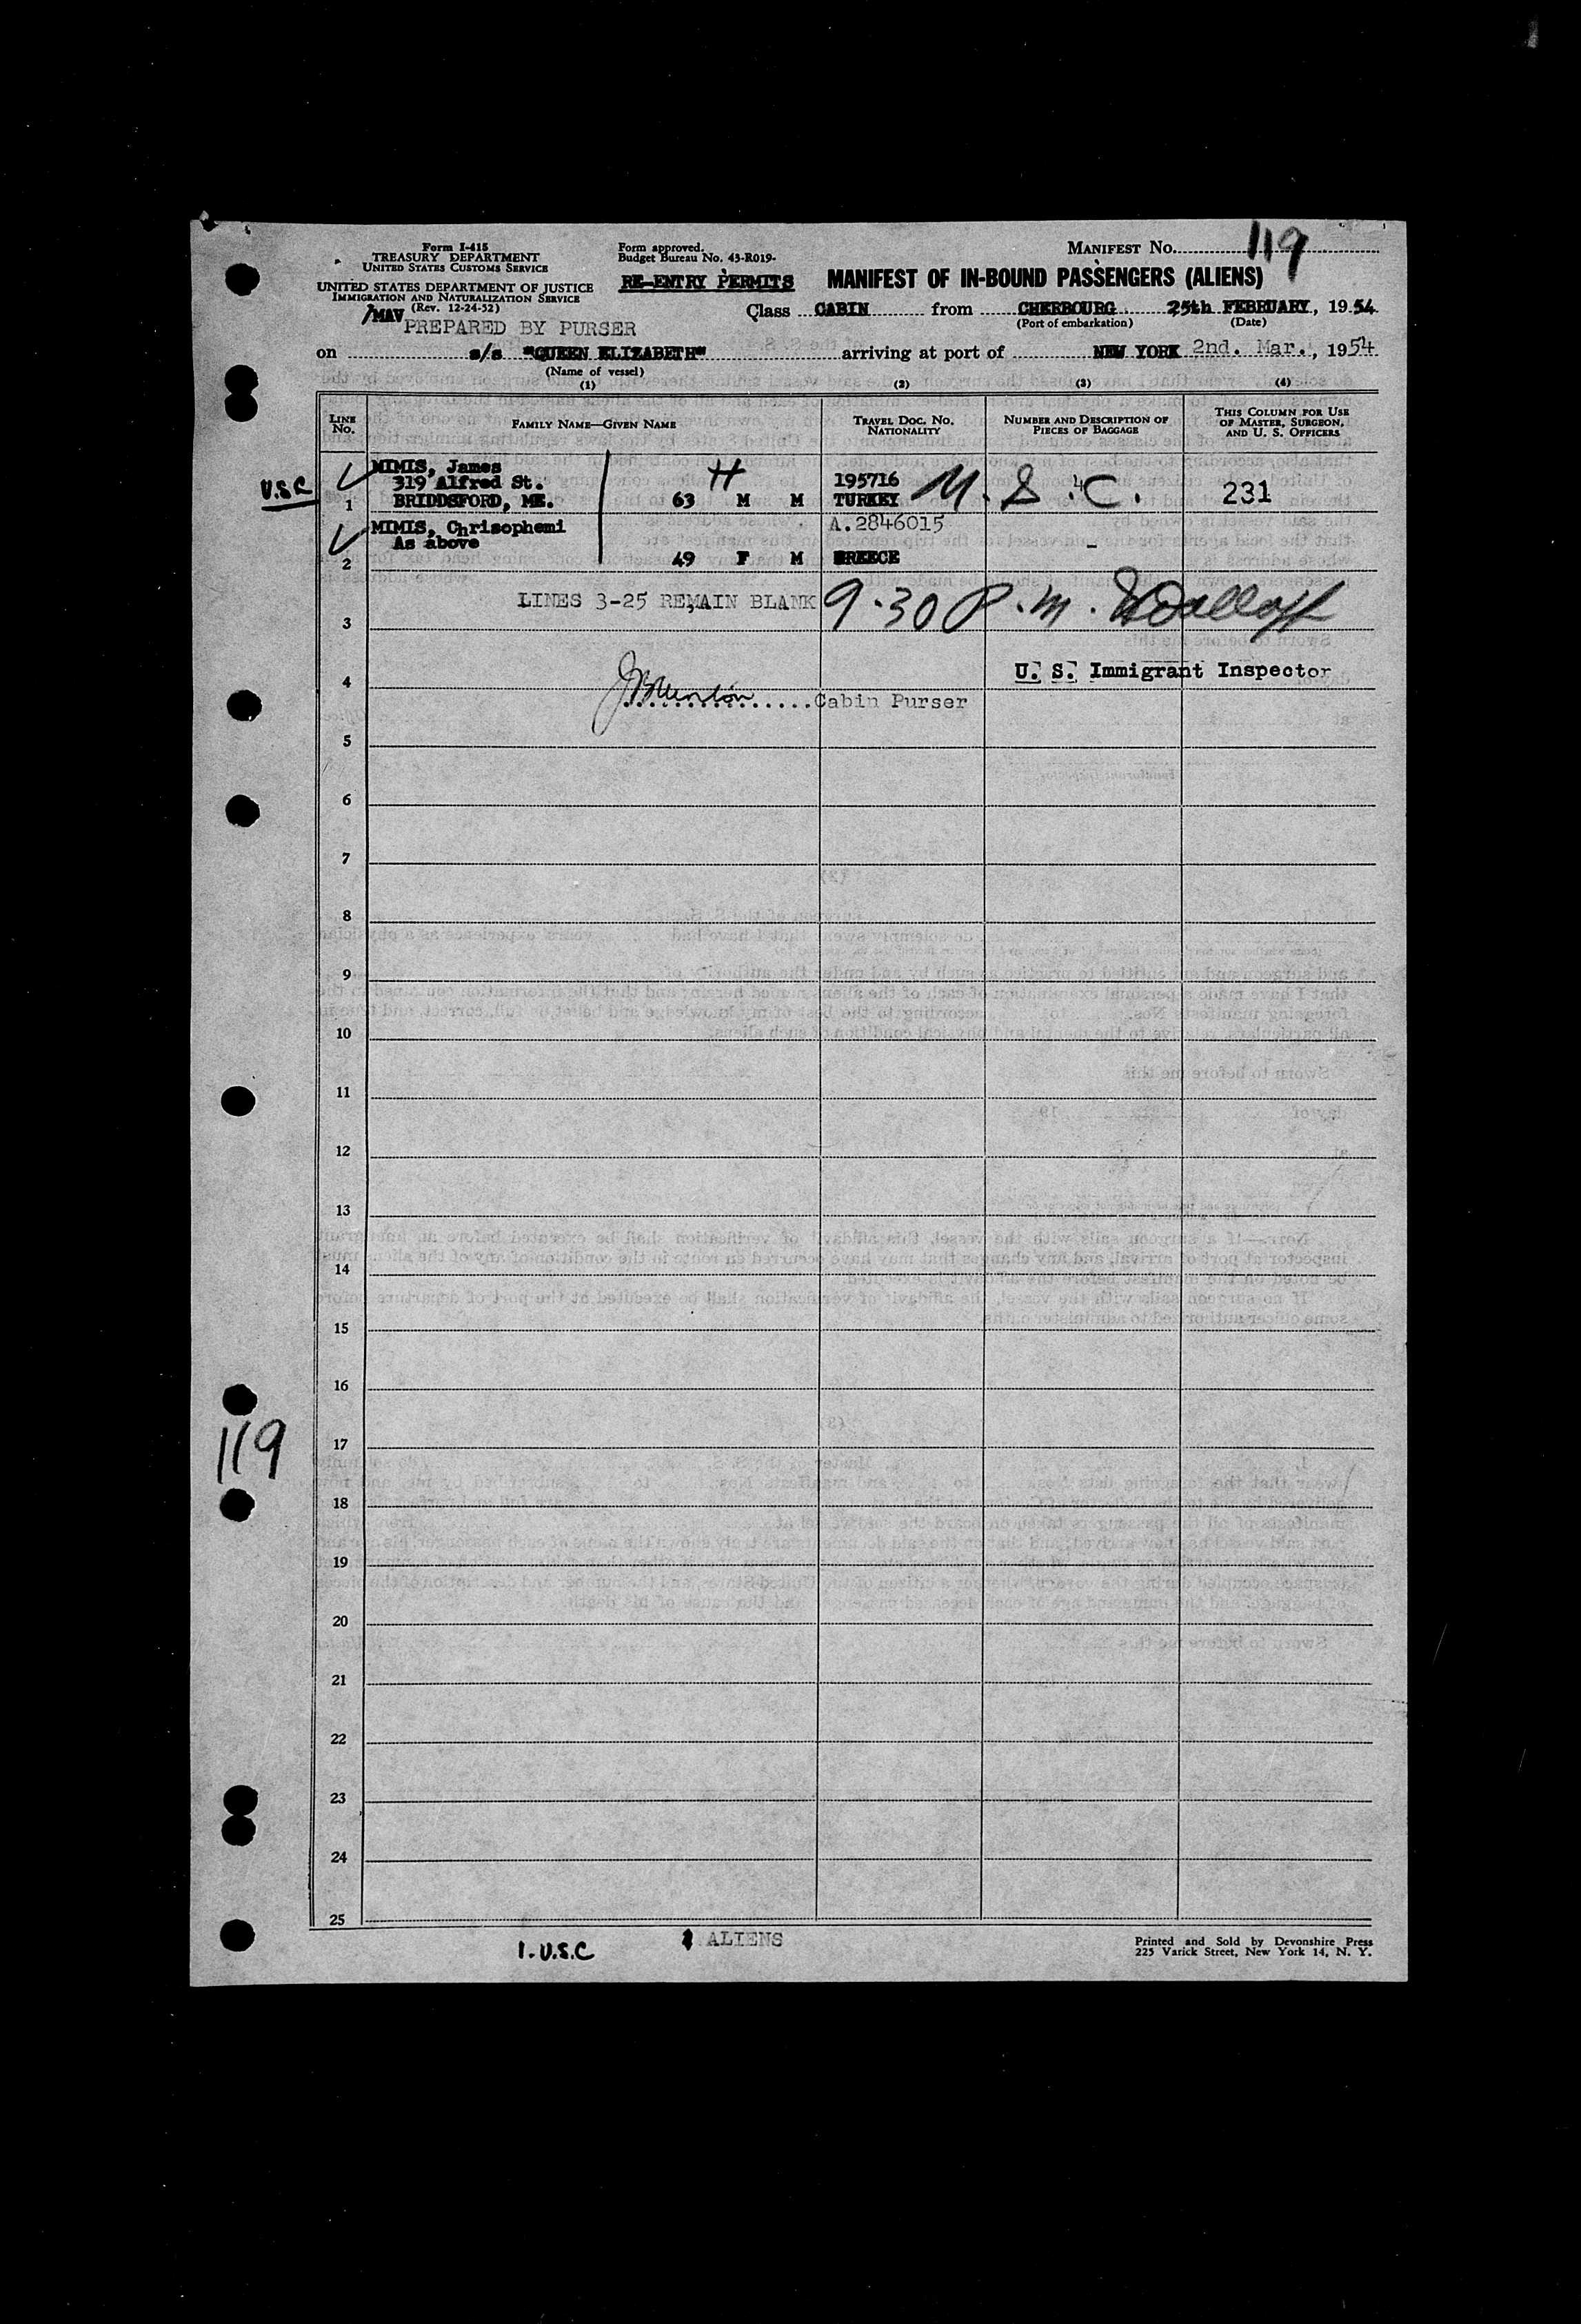 Form I-415
TREASURY DEPARTMENT
UNITED STATES CUSTOMS SERVICE
UNITED STATES DEPARTMENT OF JUSTICE
IMMIGRATION AND NATURALIZATION SERVICE
(Rev. 12-24-52)
/MAV
PREPARED BY PURSER
Form approved.
Budget Bureau No. 43-R019-
RE-ENTRY PERMITS
MANIFEST No. 119
MANIFEST OF IN-BOUND PASSENGERS (ALIENS)
Class CABIN from CHERBOURG 25th FEBRUARY, 1954
(Port of embarkation) (Date)
on s/s "QUEEN ELIZABETH" arriving at port of NEW YORK 2nd. Mar., 1954
(Name of vessel)
(1) (2) (3) (4)
LINE No. FAMILY NAME—GIVEN NAME TRAVEL DOC. NO. NATIONALITY NUMBER AND DESCRIPTION OF PIECES OF BAGGAGE THIS COLUMN FOR USE OF MASTER, SURGEON, AND U. S. OFFICERS
MIMIS, James H
319 Alfred St. 195716
U.S.C 1 BRIDDSFORD, ME. 63 M M TURKEY U.S.C. 4 231
MIMIS, Chrisophemi A.2846015
As above -
2 49 F M GREECE
LINES 3-25 REMAIN BLANK 9.30 P.m.
3
U. S. Immigrant Inspector
4
Cabin Purser
5
6
7
8
9
10
11
12
13
14
15
16
17
119
18
19
20
21
22
23
24
25
1. U.S.C 1 ALIENS
Printed and Sold by Devonshire Press
225 Varick Street, New York 14, N. Y.